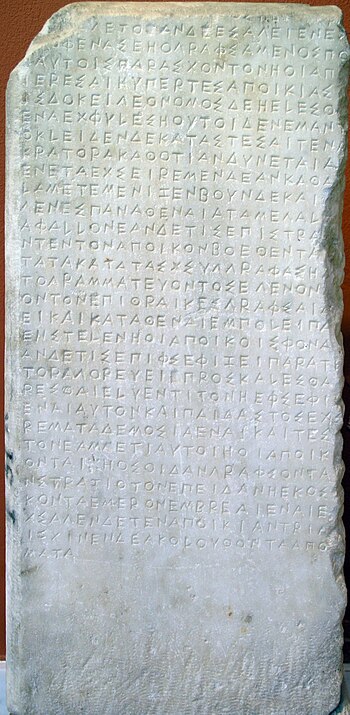 ΛΕΤΟΕΑΝΔΕΕΣΑΛΕΙΕΝΕΧ
ΟΦΕΝΑΣΕΗΟΛΡΑΦΣΑΜΕΝΟΣΠΟ
ΑΥΤΟΙΣΠΑΡΑΣΧΟΝΤΟΝΗΟΙΑΠ
ΕΡΕΣΑΙΗΥΠΕΡΤΕΣΑΠΟΙΚΙΑΣ
ΣΔΟΚΕΙΛΕΟΝΟΜΟΣΔΕΗΕLΕΣΘ
ΕΝΑΕΧΦΥLΕΣΗΟΥΤΟΙΔΕΝΕΜΑΝΤ
ΟΚLΕΙΔΕΝΔΕΚΑΤΑΣΤΕΣΑΙΤΕΝΑ
ΚΡΑΤΟΡΑΚΑΘΟΤΙΑΝΔΥΝΕΤΑΙΑ
ΕΝΕΤΑΕΧΣΕΙΡΕΜΕΝΑΕΑΝΚΑΘΑ
LΑΜΕΤΕΜΕΝΙΖΕΝΒΟΥΝΔΕΚΑΙΠ
ΛΕΝΕΣΠΑΝΑΘΕΝΑΙΑΤΑΜΕΛΑL
ΑΦΑLLΟΝΕΑΝΔΕΤΙΣΕΠΙΣΤΡΑ
ΝΤΕΝΤΟΝΑΠΟΙΚΟΝΒΟΕΘΕΝΤΑ
ΤΑΤΑΚΑΤΑΤΑΣΧΣΥΛΛΡΑΦΑΣΗΑ
ΤΟΛΡΑΜΜΑΤΕΥΟΝΤΟΣΕΛΕΝΟΝ
ΟΝΤΟΝΕΠΙΘΡΑΙΚΕΣΛΡΑΦΣΑΙ
ΕΙΚΑΙΚΑΤΑΘΕΝΑΙΕΜΠΟLΕΙΠΑ
ΕΝΣΤΕLΕΝΗΟΙΑΠΟΙΚΟΙΣΦΟΝΑ
ΑΝΔΕΤΙΣΕΠΙΦΣΕΦΙΖΕΙΠΑΡΑΤ
ΤΟΡΑΛΟΡΕΥΕΙΕΠΡΟΣΚΑLΕΣΘΑ
ΡΕΣΘΑΙΕLΥΕΝΤΙΤΟΝΗΕΦΣΕΦΙ
ΕΝΑΙΑΥΤΟΝΚΑΙΠΑΙΔΑΣΤΟΣΕΧΣ
ΡΕΜΑΤΑΔΕΜΟΣΙΑΕΝΑΙΚΑΙΤΕΣ
ΤΟΝΕΑΜΜΕΤΙΑΥΤΟΙΗΟΙΑΠΟΙΚ
ΟΝΤΑΙΗΟΣΟΙΔΑΝΛΡΑΦΣΟΝΤΑ
ΝΣΤΡΑΤΙΟΤΟΝΕΠΕΙΔΑΝΗΕΚΟΣ
ΚΟΝΤΑΕΜΕΡΟΝΕΜΒΡΕΑΙΕΝΑΙΕ
ΧΣΑΛΕΝΔΕΤΕΝΑΠΟΙΚΙΑΝΤΡΙΑ
ΙΣΧΙΝΕΝΔΕΑΚΟLΟΥΘΟΝΤΑΑΠΟ
ΜΑΤΑ